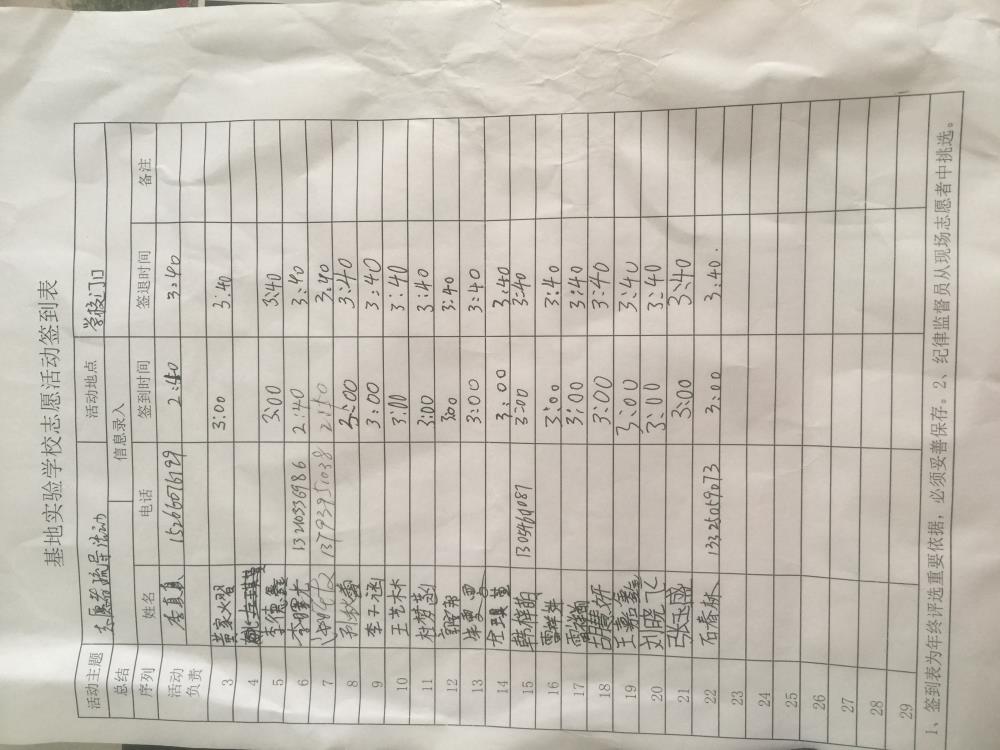 基地实验学校志愿活动签到表
活动主题 志愿者疏导活动 活动地点 学校门口
总结 信息录入
序列 姓名 电话 签到时间 签退时间 备注
活动负责 李真真 15266076199 2:40 3:40
3 黄家火習 3:00 3:40
4
5 李德鑫 3:00 3:40
6 李曙光 13210336986 2:40 3:40
7 13793951038 2:50 3:40
8 3:00 3:40
9 李子涵 3:00 3:40
10 王艺木木 3:00 3:40
11 3:00 3:40
12 3:00 3:40
13 3:00 3:40
14 3:00 3:40
15 韩祥萌 1305464087 3:00 3:40
16 3:00 3:40
17 3:00 3:40
18 3:00 3:40
19 王嘉鑫 3:00 3:40
20 刘晓飞 3:00 3:40
21 马永盛 3:00 3:40
22 石春林 13325059073 3:00 3:40.
23
24
25
26
27
28
29
1、签到表为年终评选重要依据，必须妥善保存。2、纪律监督员从现场志愿者中挑选。